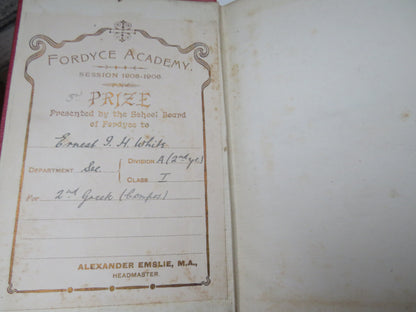 FORDYCE ACADEMY.
SESSION 1905-1906.
PRIZE
Presented by the School Board
of Fordyce to
Ernest I. H. White
DEPARTMENT Sec DIVISION A (2nd yr)
CLASS I
For 2nd Greek (Compos)
ALEXANDER EMSLIE, M.A.,
HEADMASTER